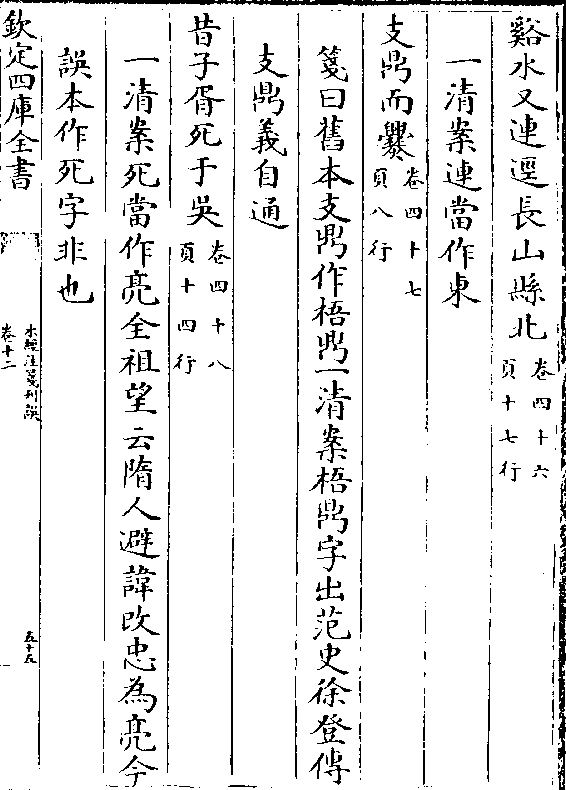 谿水又連逕長山縣北卷四十六頁十七行
一清案連當作東
支鼎而爨卷四十七頁八行
箋曰舊本支鼎作梧鼎一清案梧鼎字出范史徐登傳
支鼎義自通
昔子胥死于吳卷四十八頁十四行
一清案死當作亮全祖望云隋人避諱改忠為亮今
誤本作死字非也
欽定四庫全書
水經注箋刋誤
卷十二
五十五